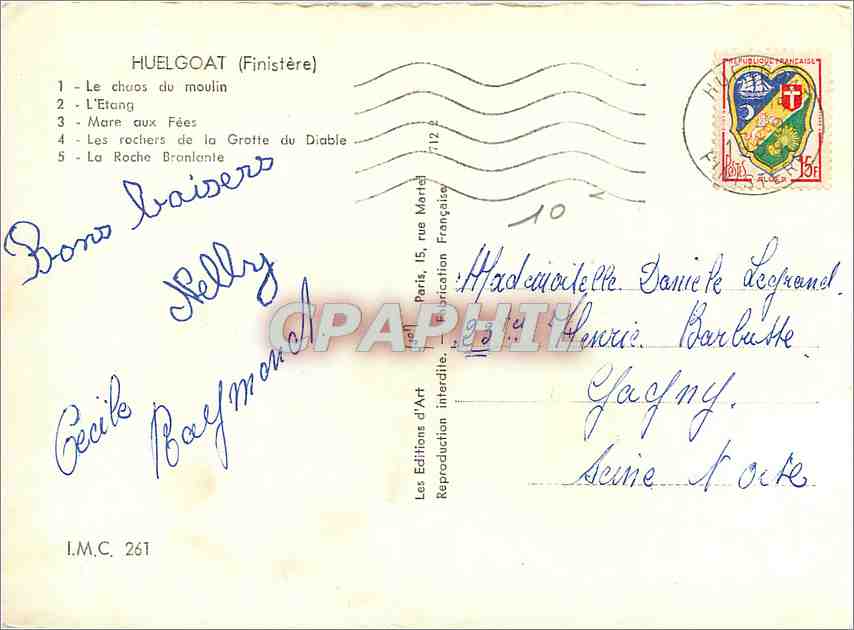 HUELGOAT (Finistère)
1 - Le chaos du moulin
2 - L'Etang
3 - Mare aux Fées
4 - Les rochers de la Grotte du Diable
5 - La Roche Branlante
Bons baisers
Nelly
Raymond
Cécile
I.M.C. 261
Les Editions d'Art Paris, 15, rue Martel
Reproduction interdite. - Fabrication Française
10
REPUBLIQUE FRANÇAISE
POSTES
ALGER
15F
HUE
FINISTERE
Mademoiselle Danièle Legrand.
23 Henric Barbusse
Gagny.
Seine N Oise
CPAPHIL